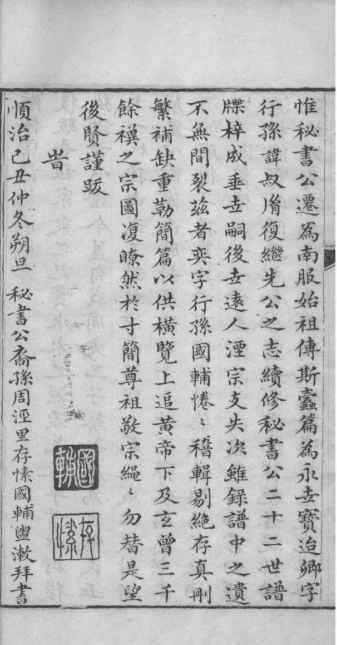 惟秘書公遷為南服始祖傳斯蠹篇為永世寶迨卿字
行孫諱叔脩復繼先公之志續修秘書公二十二世譜
牒梓成垂世嗣後世遠人湮宗支失次雖錄譜中之遺
不無間裂茲者奕字行孫國輔惓〻稽輯剔絶存真刪
繁補缺重勒簡篇以供橫覽上追黃帝下及玄曾三千
餘禩之宗圖復瞭然於寸簡尊祖敬宗繩〻勿替是望
後賢謹跋
旹
順治己丑仲冬朔旦 秘書公裔孫周涇里存愫國輔盥漱拜書
國輔
存愫